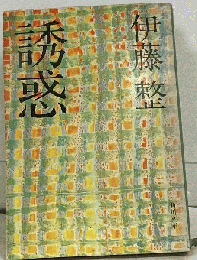 伊藤 整
誘惑